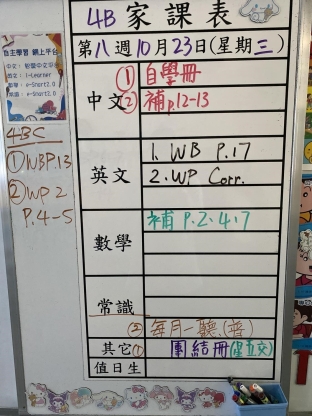 4B 家課表
第八週10月23日(星期三)
自主學習 網上平台
中文
① 自學冊
② 補p.12-13
4BC
① WB P.13
② WP 2
P.4-5
英文
1. WB P.17
2. WP Corr.
數學
補 P.2.4.7
常識
② 每月一聽(齊)
其它
① 團結冊(星五交)
值日生